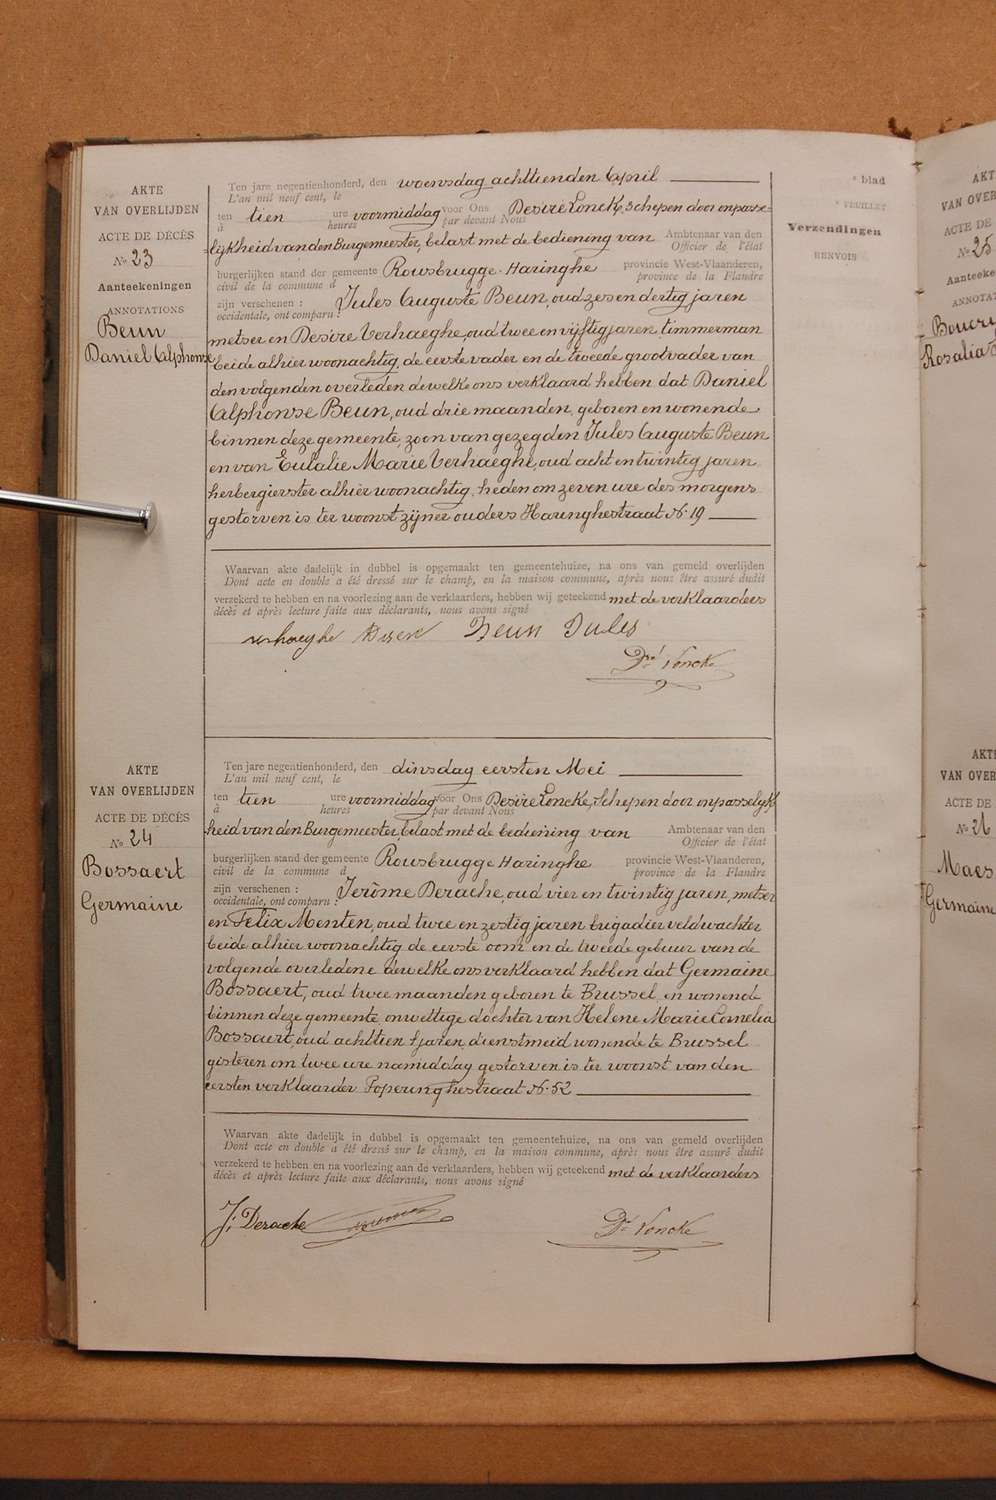 AKTE
VAN OVERLIJDEN
ACTE DE DÉCÈS
No 23
Aanteekeningen
ANNOTATIONS
Beun
Daniel Alphonse
Ten jare negentienhonderd, den woensdag achttienden April
L'an mil neuf cent, le
ten tien ure voormiddag voor Ons Desiré Loncke, Schepen door onpasse-
à heures par devant Nous
lijkheid van den Burgemeester, belast met de bediening van Ambtenaar van den
Officier de l'état
burgerlijken stand der gemeente Rousbrugge-Haringhe provincie West-Vlaanderen,
civil de la commune d province de la Flandre
zijn verschenen : Jules Auguste Beun, oud zes en dertig jaren
occidentale, ont comparu :
metser en Desiré Verhaeghe, oud twee en vijftig jaren, timmerman
beide alhier woonachtig, de eerste vader en de tweede grootvader van
den volgenden overleden dewelke ons verklaard hebben dat Daniel
Alphonse Beun, oud drie maanden, geboren en wonende
binnen deze gemeente, zoon van gezegden Jules Auguste Beun
en van Eulalie Marie Verhaeghe, oud acht en twintig jaren
herbergierster alhier woonachtig, heden om zeven ure des morgens
gestorven is ter woonst zijner ouders Haringhestraat No 19
Waarvan akte dadelijk in dubbel is opgemaakt ten gemeentehuize, na ons van gemeld overlijden
Dont acte en double a été dressé sur le champ, en la maison commune, après nous être assuré dudit
verzekerd te hebben en na voorlezing aan de verklaarders, hebben wij geteekend met de verklaarders
décès et après lecture faite aux déclarants, nous avons signé
verhaeghe Diseré Beun Jules
Dré Loncke
AKTE
VAN OVERLIJDEN
ACTE DE DÉCÈS
No 24
Bossaert
Germaine
Ten jare negentienhonderd, den dinsdag eersten Mei
L'an mil neuf cent, le
ten tien ure voormiddag voor Ons Desiré Loncke, Schepen door onpasselijk-
à heures par devant Nous
heid van den Burgemeester belast met de bediening van Ambtenaar van den
Officier de l'état
burgerlijken stand der gemeente Rousbrugge Haringhe provincie West-Vlaanderen,
civil de la commune d province de la Flandre
zijn verschenen : Jerôme Derache, oud vier en twintig jaren, metser
occidentale, ont comparu :
en Felix Menten, oud twee en zestig jaren brigadier veldwachter
beide alhier woonachtig de eerste oom en de tweede gebuur van de
volgende overledene dewelke ons verklaard hebben dat Germaine
Bossaert, oud twee maanden geboren te Brussel en wonende
binnen deze gemeente onwettige dochter van Helene Marie Cornelia
Bossaert, oud achttien jaren, dienstmeid wonende te Brussel
gisteren om twee ure namiddag gestorven is ter woonst van den
eersten verklaarder Poperinghestraat No 52
Waarvan akte dadelijk in dubbel is opgemaakt ten gemeentehuize, na ons van gemeld overlijden
Dont acte en double a été dressé sur le champ, en la maison commune, après nous être assuré dudit
verzekerd te hebben en na voorlezing aan de verklaarders, hebben wij geteekend met de verklaarders
décès et après lecture faite aux déclarants, nous avons signé
J. Derache
Dré Loncke
e blad
e FEUILLET
Verzendingen
RENVOIS
AKT
VAN OVER
ACTE DE
No 25
Aanteeke
ANNOTAT
Boucr
Rosalia
AKT
VAN OVER
ACTE DE
No 26
Maes
Germaine